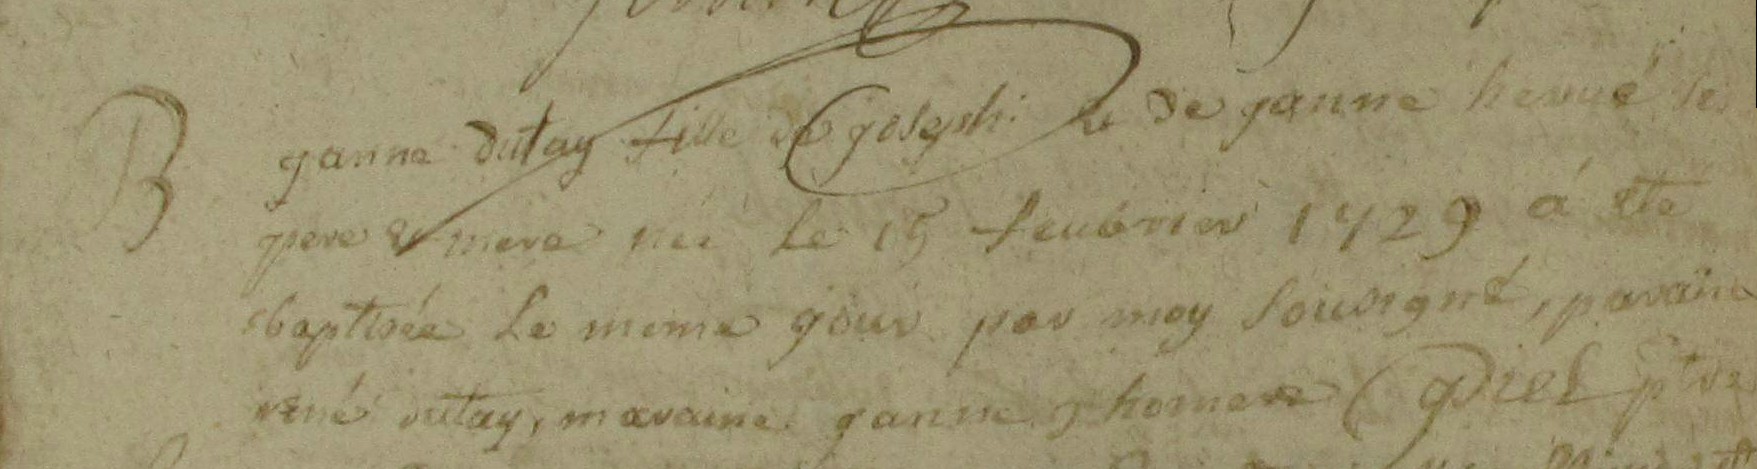 B
ganne dutay fille de joseph et de ganne hervé se
pere & mere née le 15 feubrier 1729 á ete
baptisée le meme gour par moy sousigné, paraine
rené dutay, maraine ganne homere Griel ptre